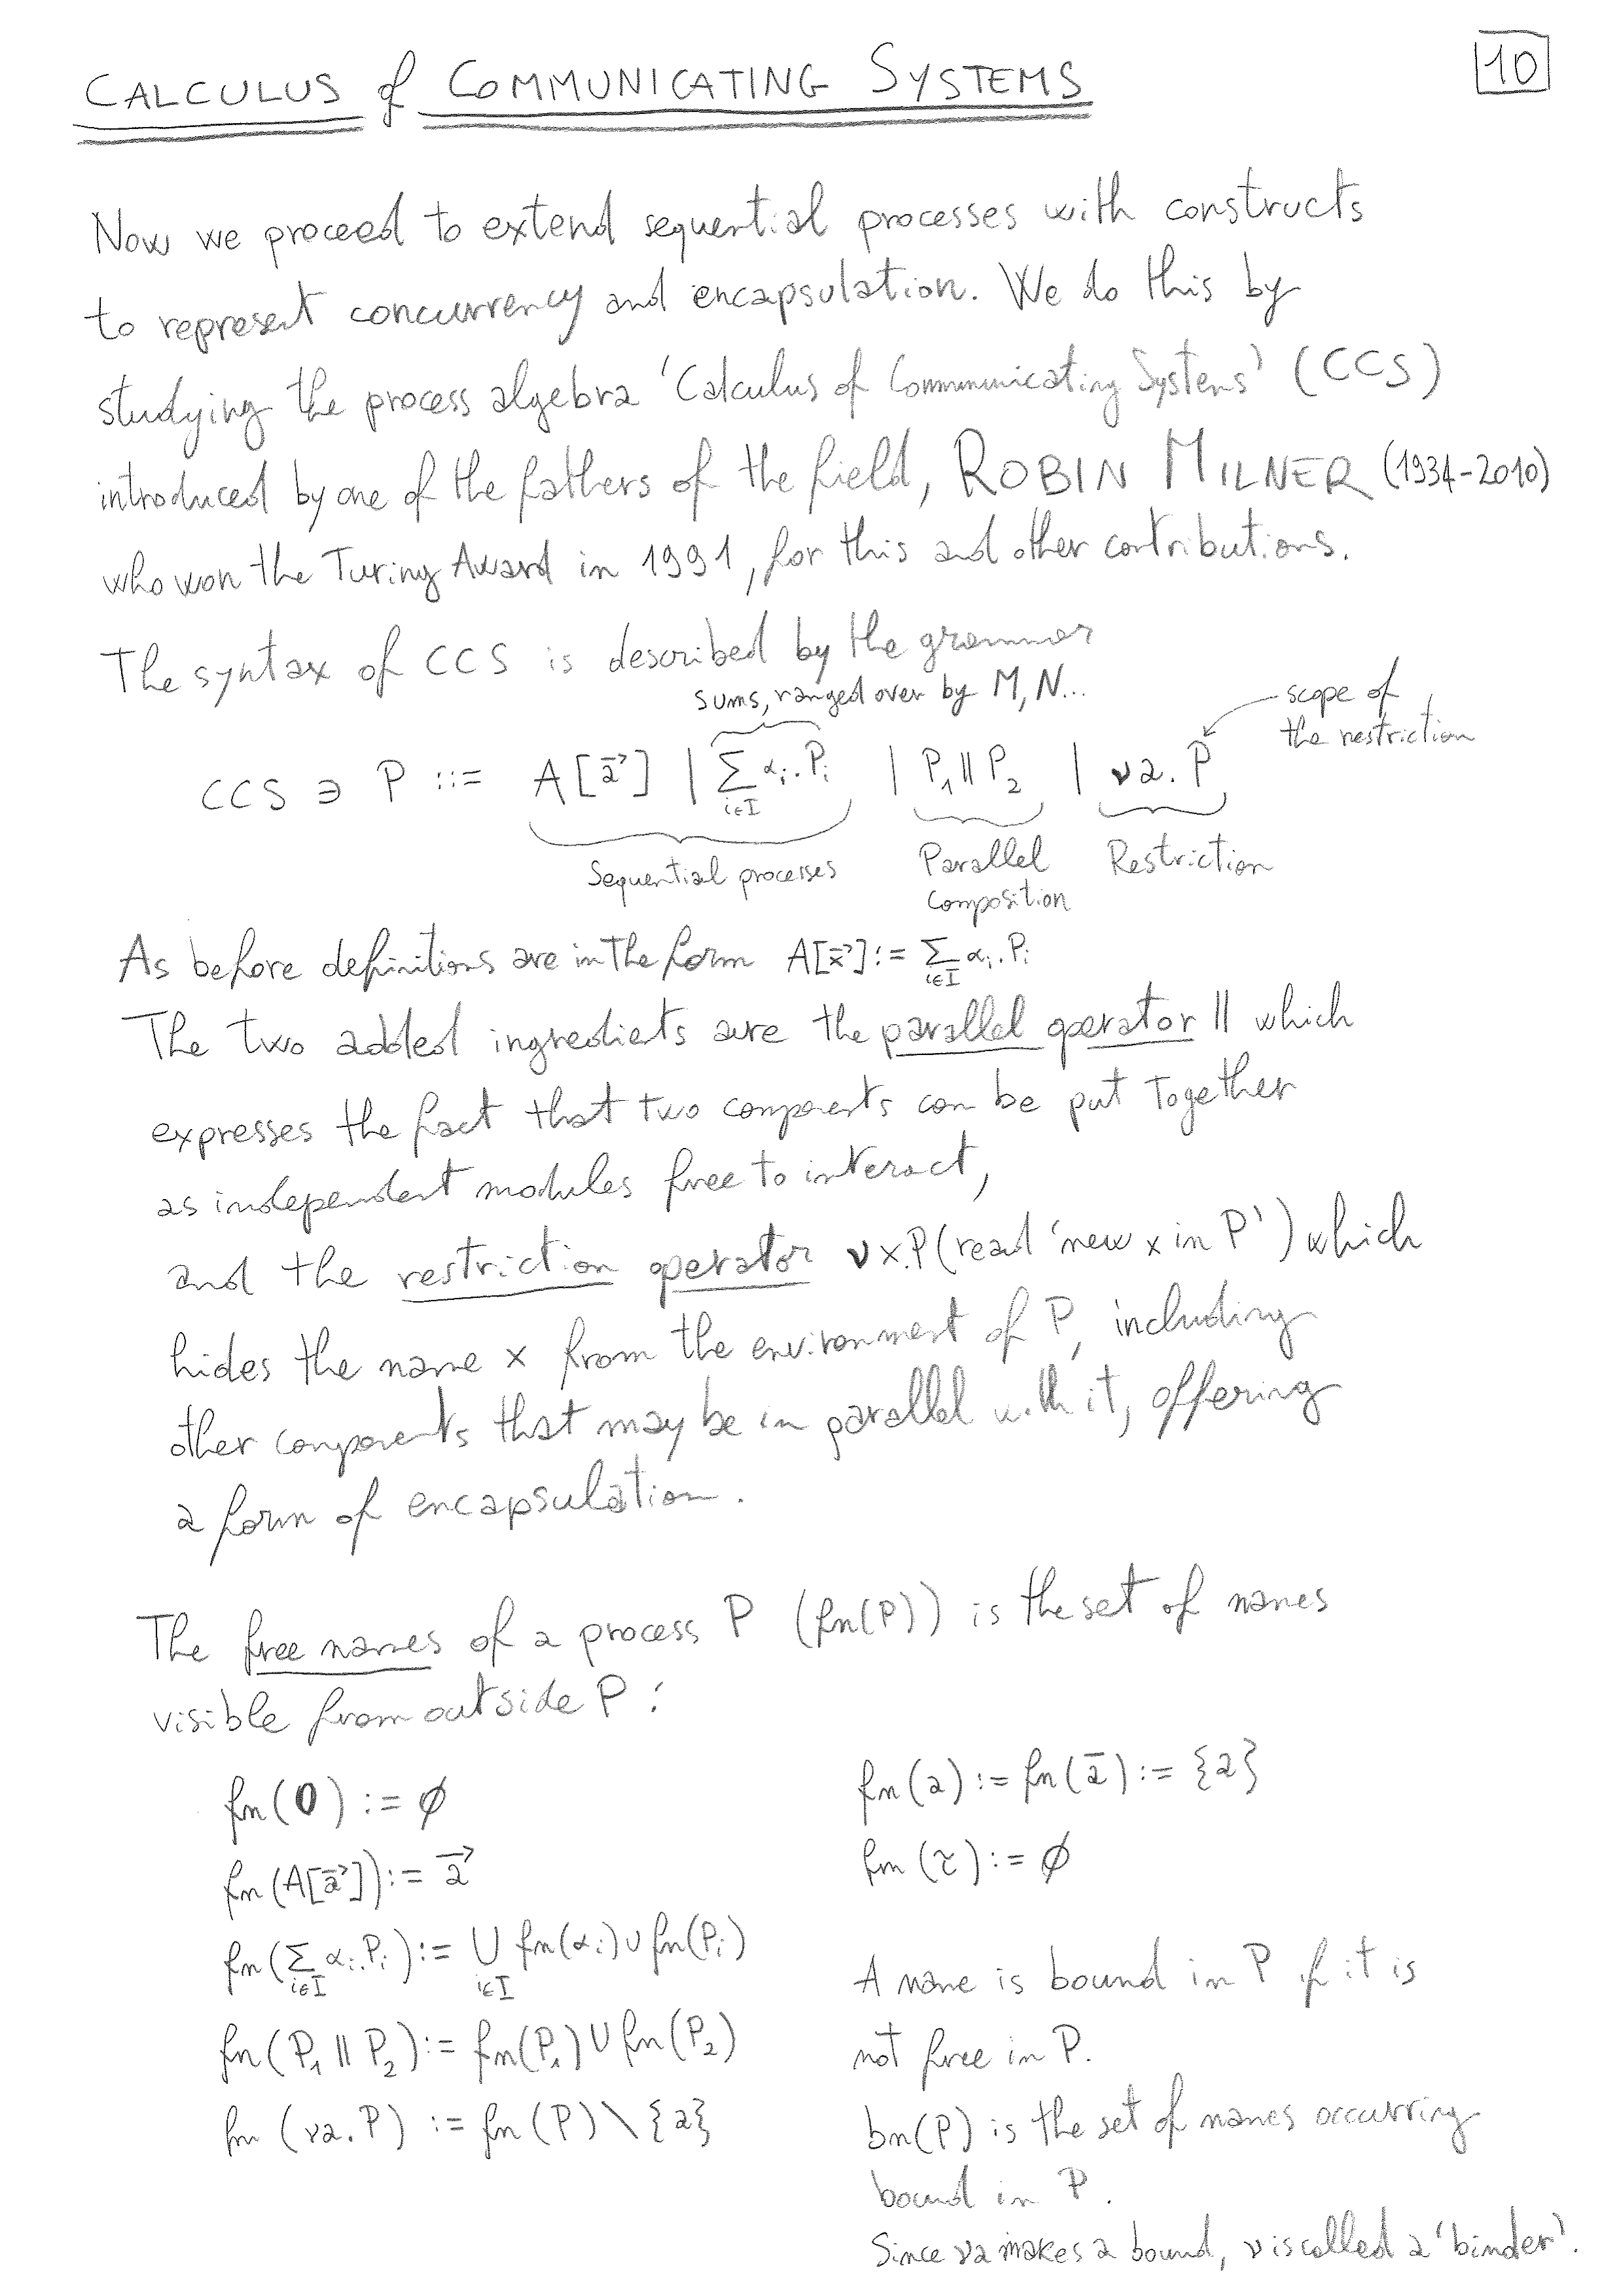 CALCULUS of COMMUNICATING SYSTEMS
10
Now we proceed to extend sequential processes with constructs
to represent concurrency and encapsulation. We do this by
studying the process algebra 'Calculus of Communicating Systems' (CCS)
introduced by one of the fathers of the field, ROBIN MILNER (1934-2010)
who won the Turing Award in 1991, for this and other contributions.
The syntax of CCS is described by the grammar
sums, ranged over by M, N...
scope of
the restriction
CCS ∋ P ::= A[a⃗] | ∑_{i∈I} αᵢ.Pᵢ | P₁ || P₂ | νa.P
Sequential processes
Parallel
composition
Restriction
As before definitions are in the form A[x⃗] := ∑_{i∈I} αᵢ.Pᵢ
The two added ingredients are the parallel operator || which
expresses the fact that two components can be put together
as independent modules free to interact,
and the restriction operator νx.P (read 'new x in P') which
hides the name x from the environment of P, including
other components that may be in parallel with it, offering
a form of encapsulation.
The free names of a process P (fn(P)) is the set of names
visible from outside P:
fn(0) := ∅
fn(A[a⃗]) := a⃗
fn(∑_{i∈I} αᵢ.Pᵢ) := ⋃_{i∈I} fn(αᵢ) ∪ fn(Pᵢ)
fn(P₁ || P₂) := fn(P₁) ∪ fn(P₂)
fn(νa.P) := fn(P) \ {a}
fn(a) := fn(ā) := {a}
fn(τ) := ∅
A name is bound in P if it is
not free in P.
bn(P) is the set of names occurring
bound in P.
Since νa makes a bound, ν is called a 'binder'.